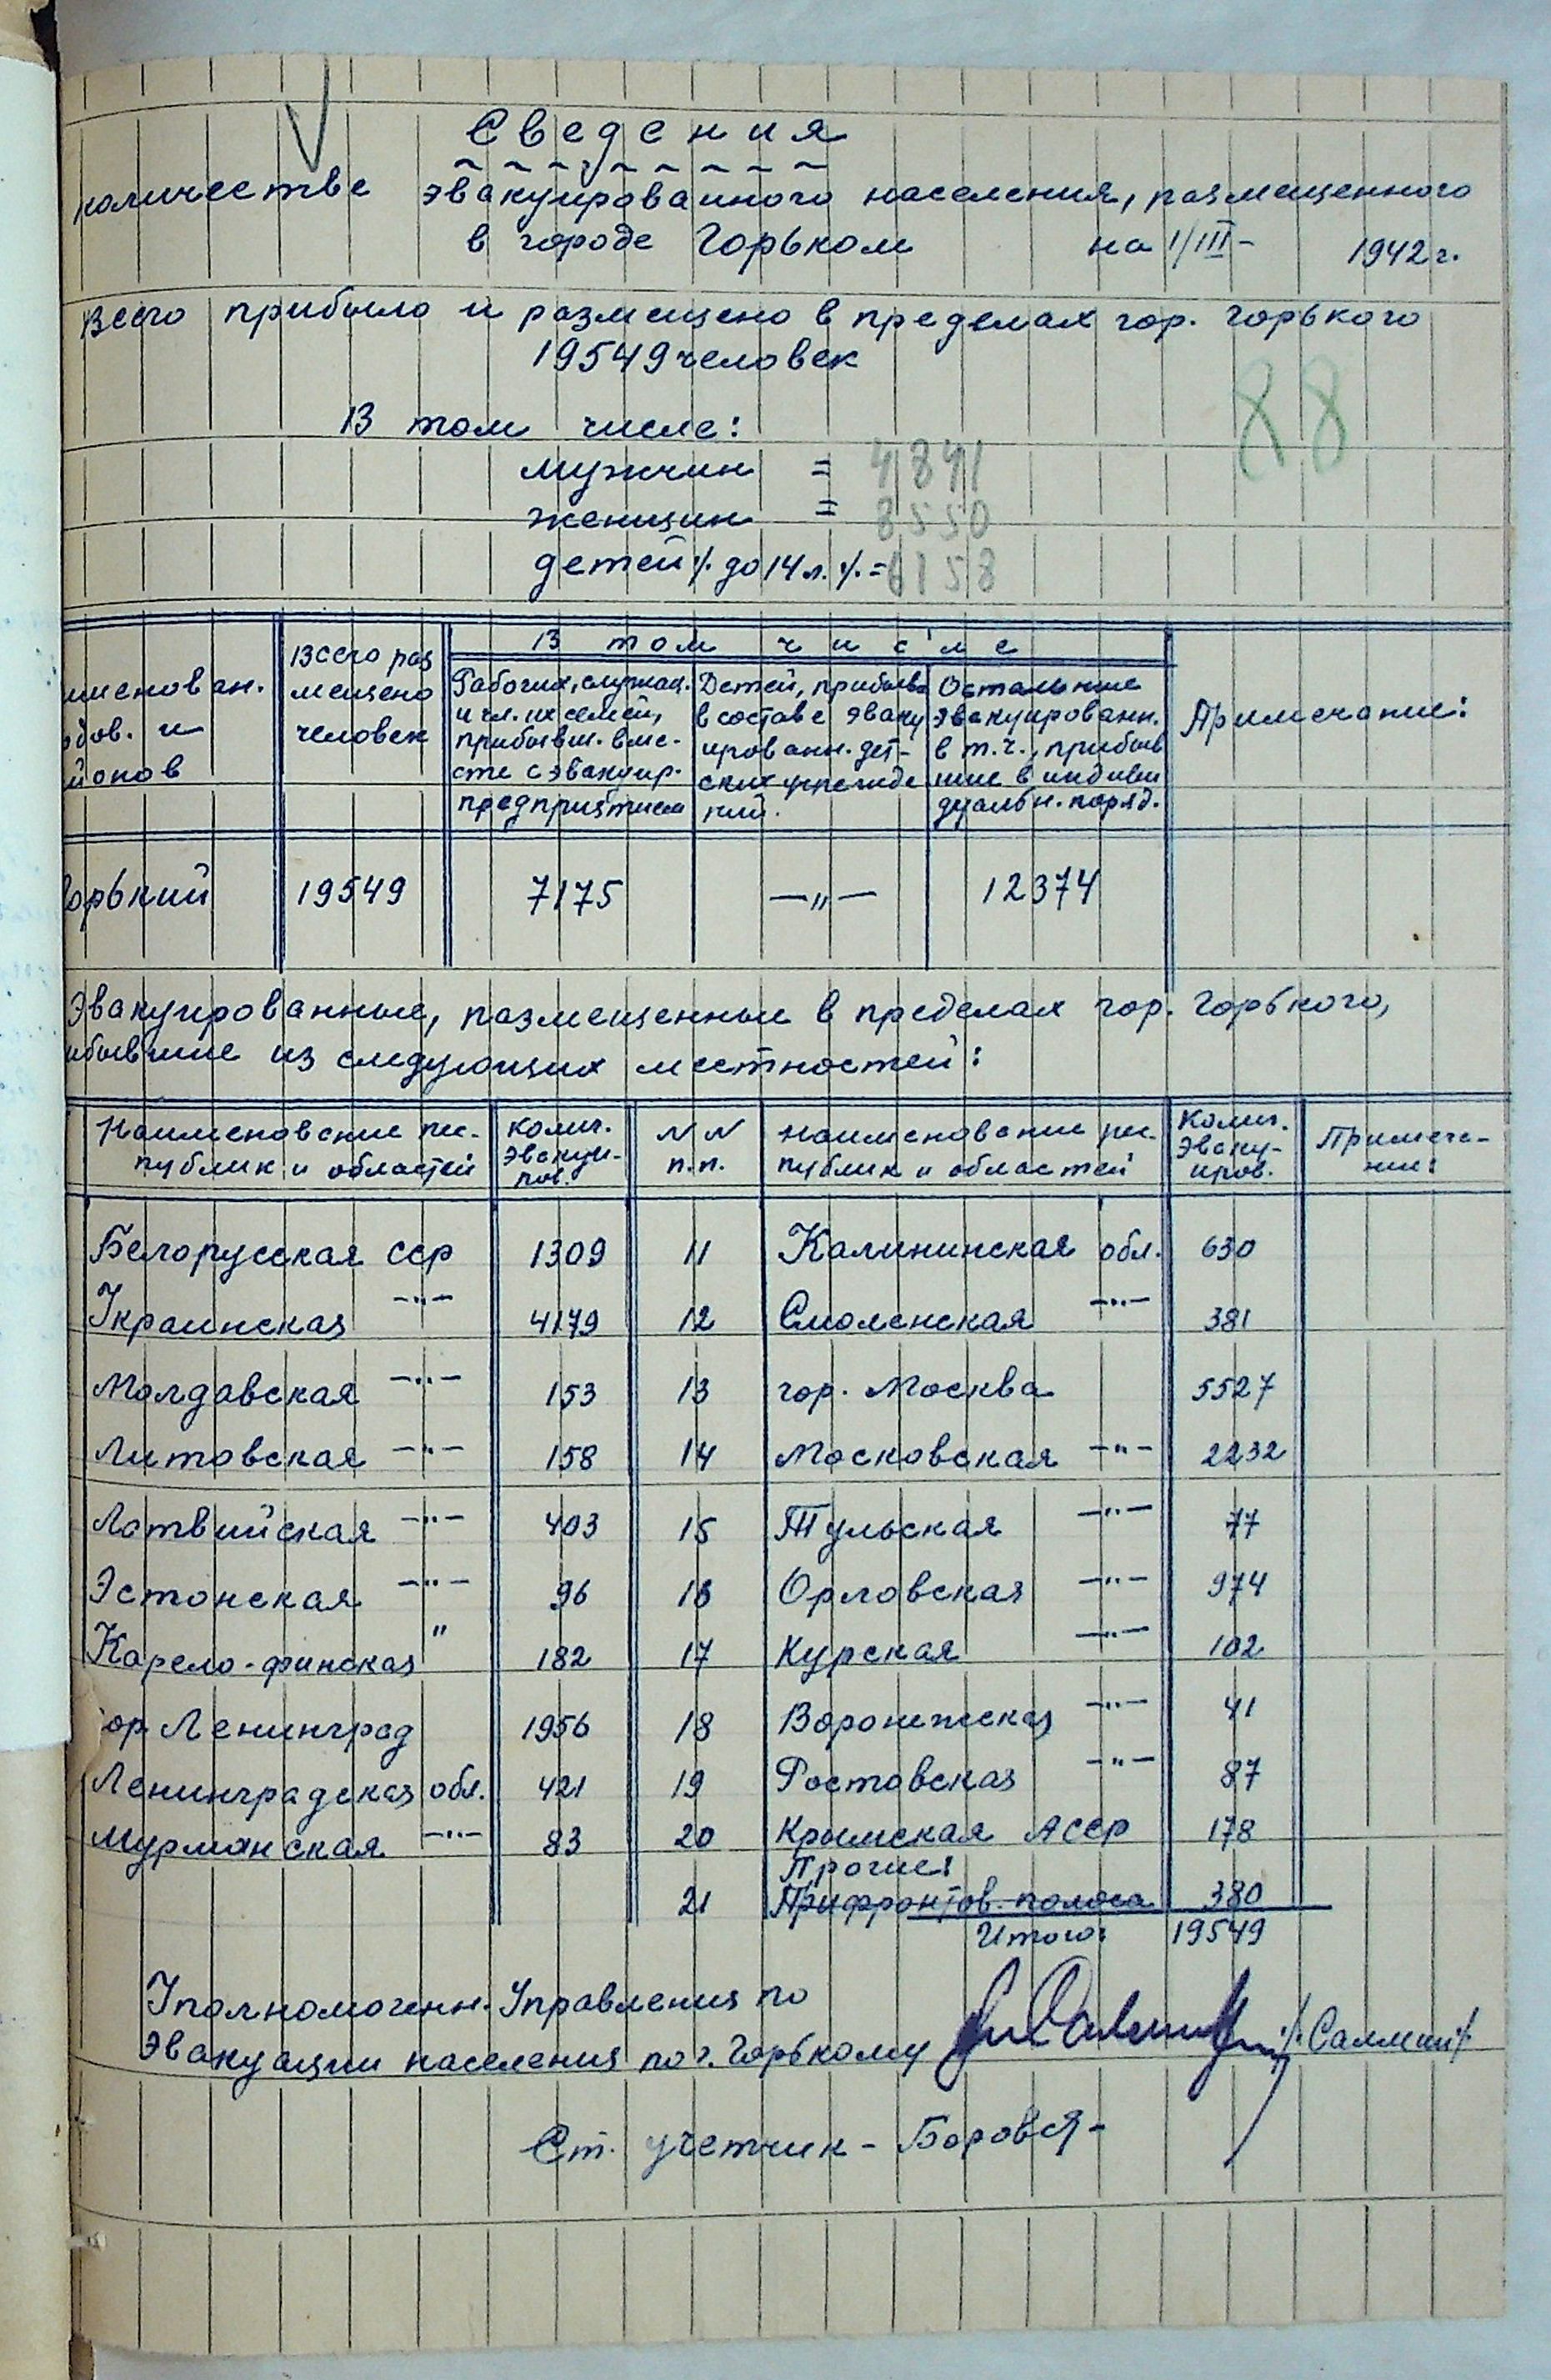 Сведения
количестве эвакуированного населения, размещенного
в городе Горьком на 1/III- 1942 г.
Всего прибыло и размещено в пределах гор. Горького
19549 человек
88
В том числе:
мужчин = 4841
женщин = 8550
детей ./. до 14 л. ./. = 6158
именован.
одов. и
йонов
Всего раз
мещено
человек
В том числе
Рабочих, служащ.
и чл. их семей,
прибывш. вме-
сте с эвакуир.
предприятием
Детей, прибывш
в составе эваку
ированн. дет-
ских учрежде
ний.
Остальные
эвакуированн.
в т.ч., прибыв
шие в индиви
дуальн. поряд.
Примечание:
Горький 19549 7175 —„— 12374
Эвакуированные, размещенные в пределах гор. Горького,
ибывшие из следующих местностей:
Наименование рес-
публик и областей
Колич.
эвакуи-
ров.
NN
п.п.
Наименование рес-
публик и областей
Колич.
эваку-
иров.
Примеча-
ние:
Белорусская ССР 1309 11 Калининская обл. 630
Украинская —„— 4179 12 Смоленская —„— 381
Молдавская —„— 153 13 гор. Москва 5527
Литовская —„— 158 14 Московская —„— 2232
Латвийская —„— 403 15 Тульская —„— 77
Эстонская —„— 96 16 Орловская —„— 974
Карело-финская " 182 17 Курская —„— 102
ор. Ленинград 1956 18 Воронежская —„— 41
Ленинградская обл. 421 19 Ростовская —„— 87
Мурманская —„— 83 20 Крымская АССР 178
Прочие:
21 Прифронтов. полоса 380
Итого: 19549
Уполномоченн. Управления по
Эвакуации населения по г. Горькому ./. Салмин ./.
Ст. учетчик - Боровся-